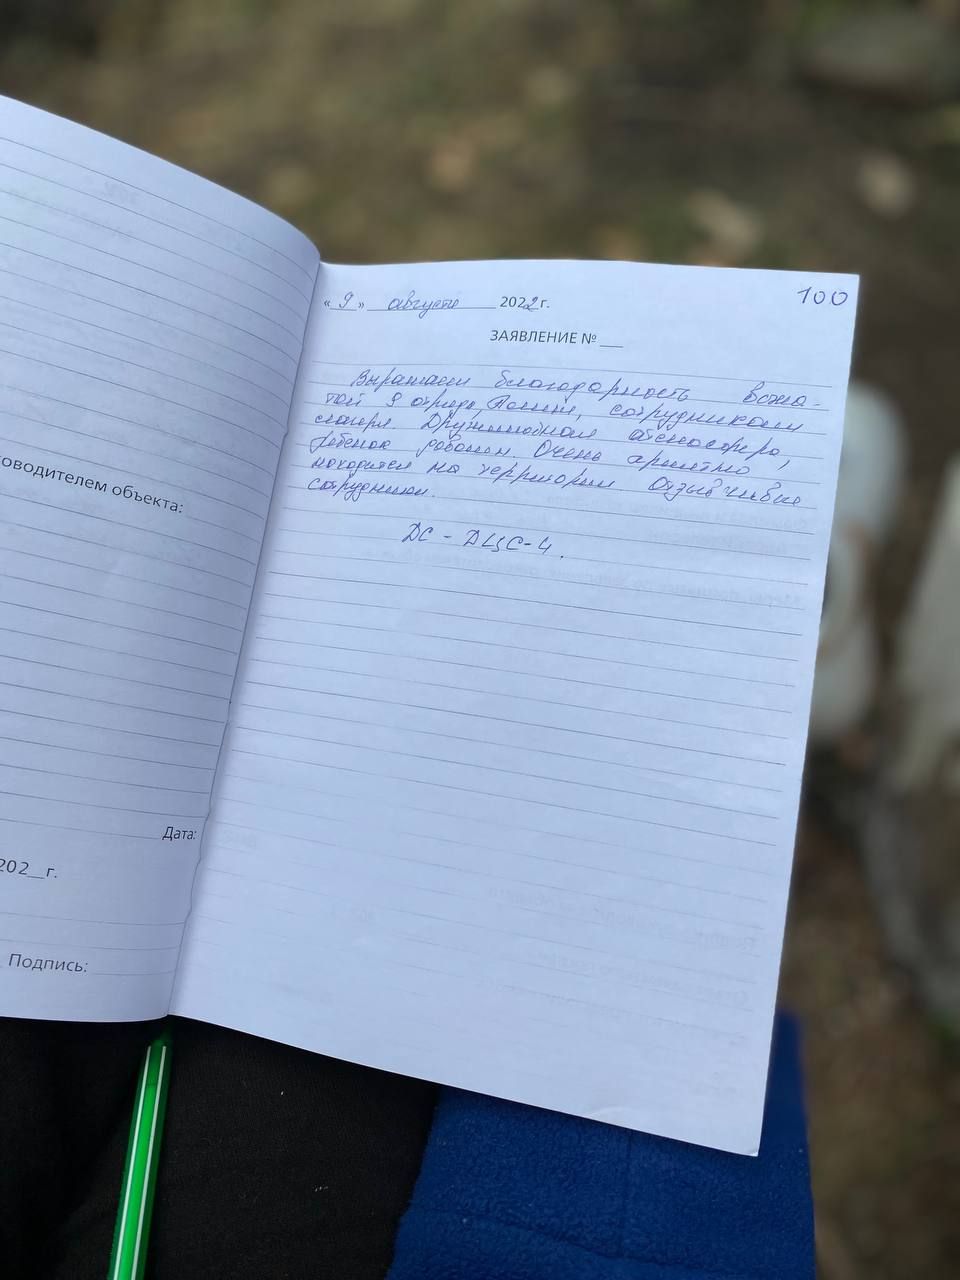 100
«9» августа 2022 г.
ЗАЯВЛЕНИЕ № ___
Выражаем благодарность вожа-
той 9 отряда, Полине, сотрудникам
лагеря. Дружелюбная атмосфера,
ребенок доволен. Очень приятно
находится на территории. Отзывчивые
сотрудники.
ДС - ДЦС-4.
ководителем объекта:
Дата:
202__г.
Подпись: